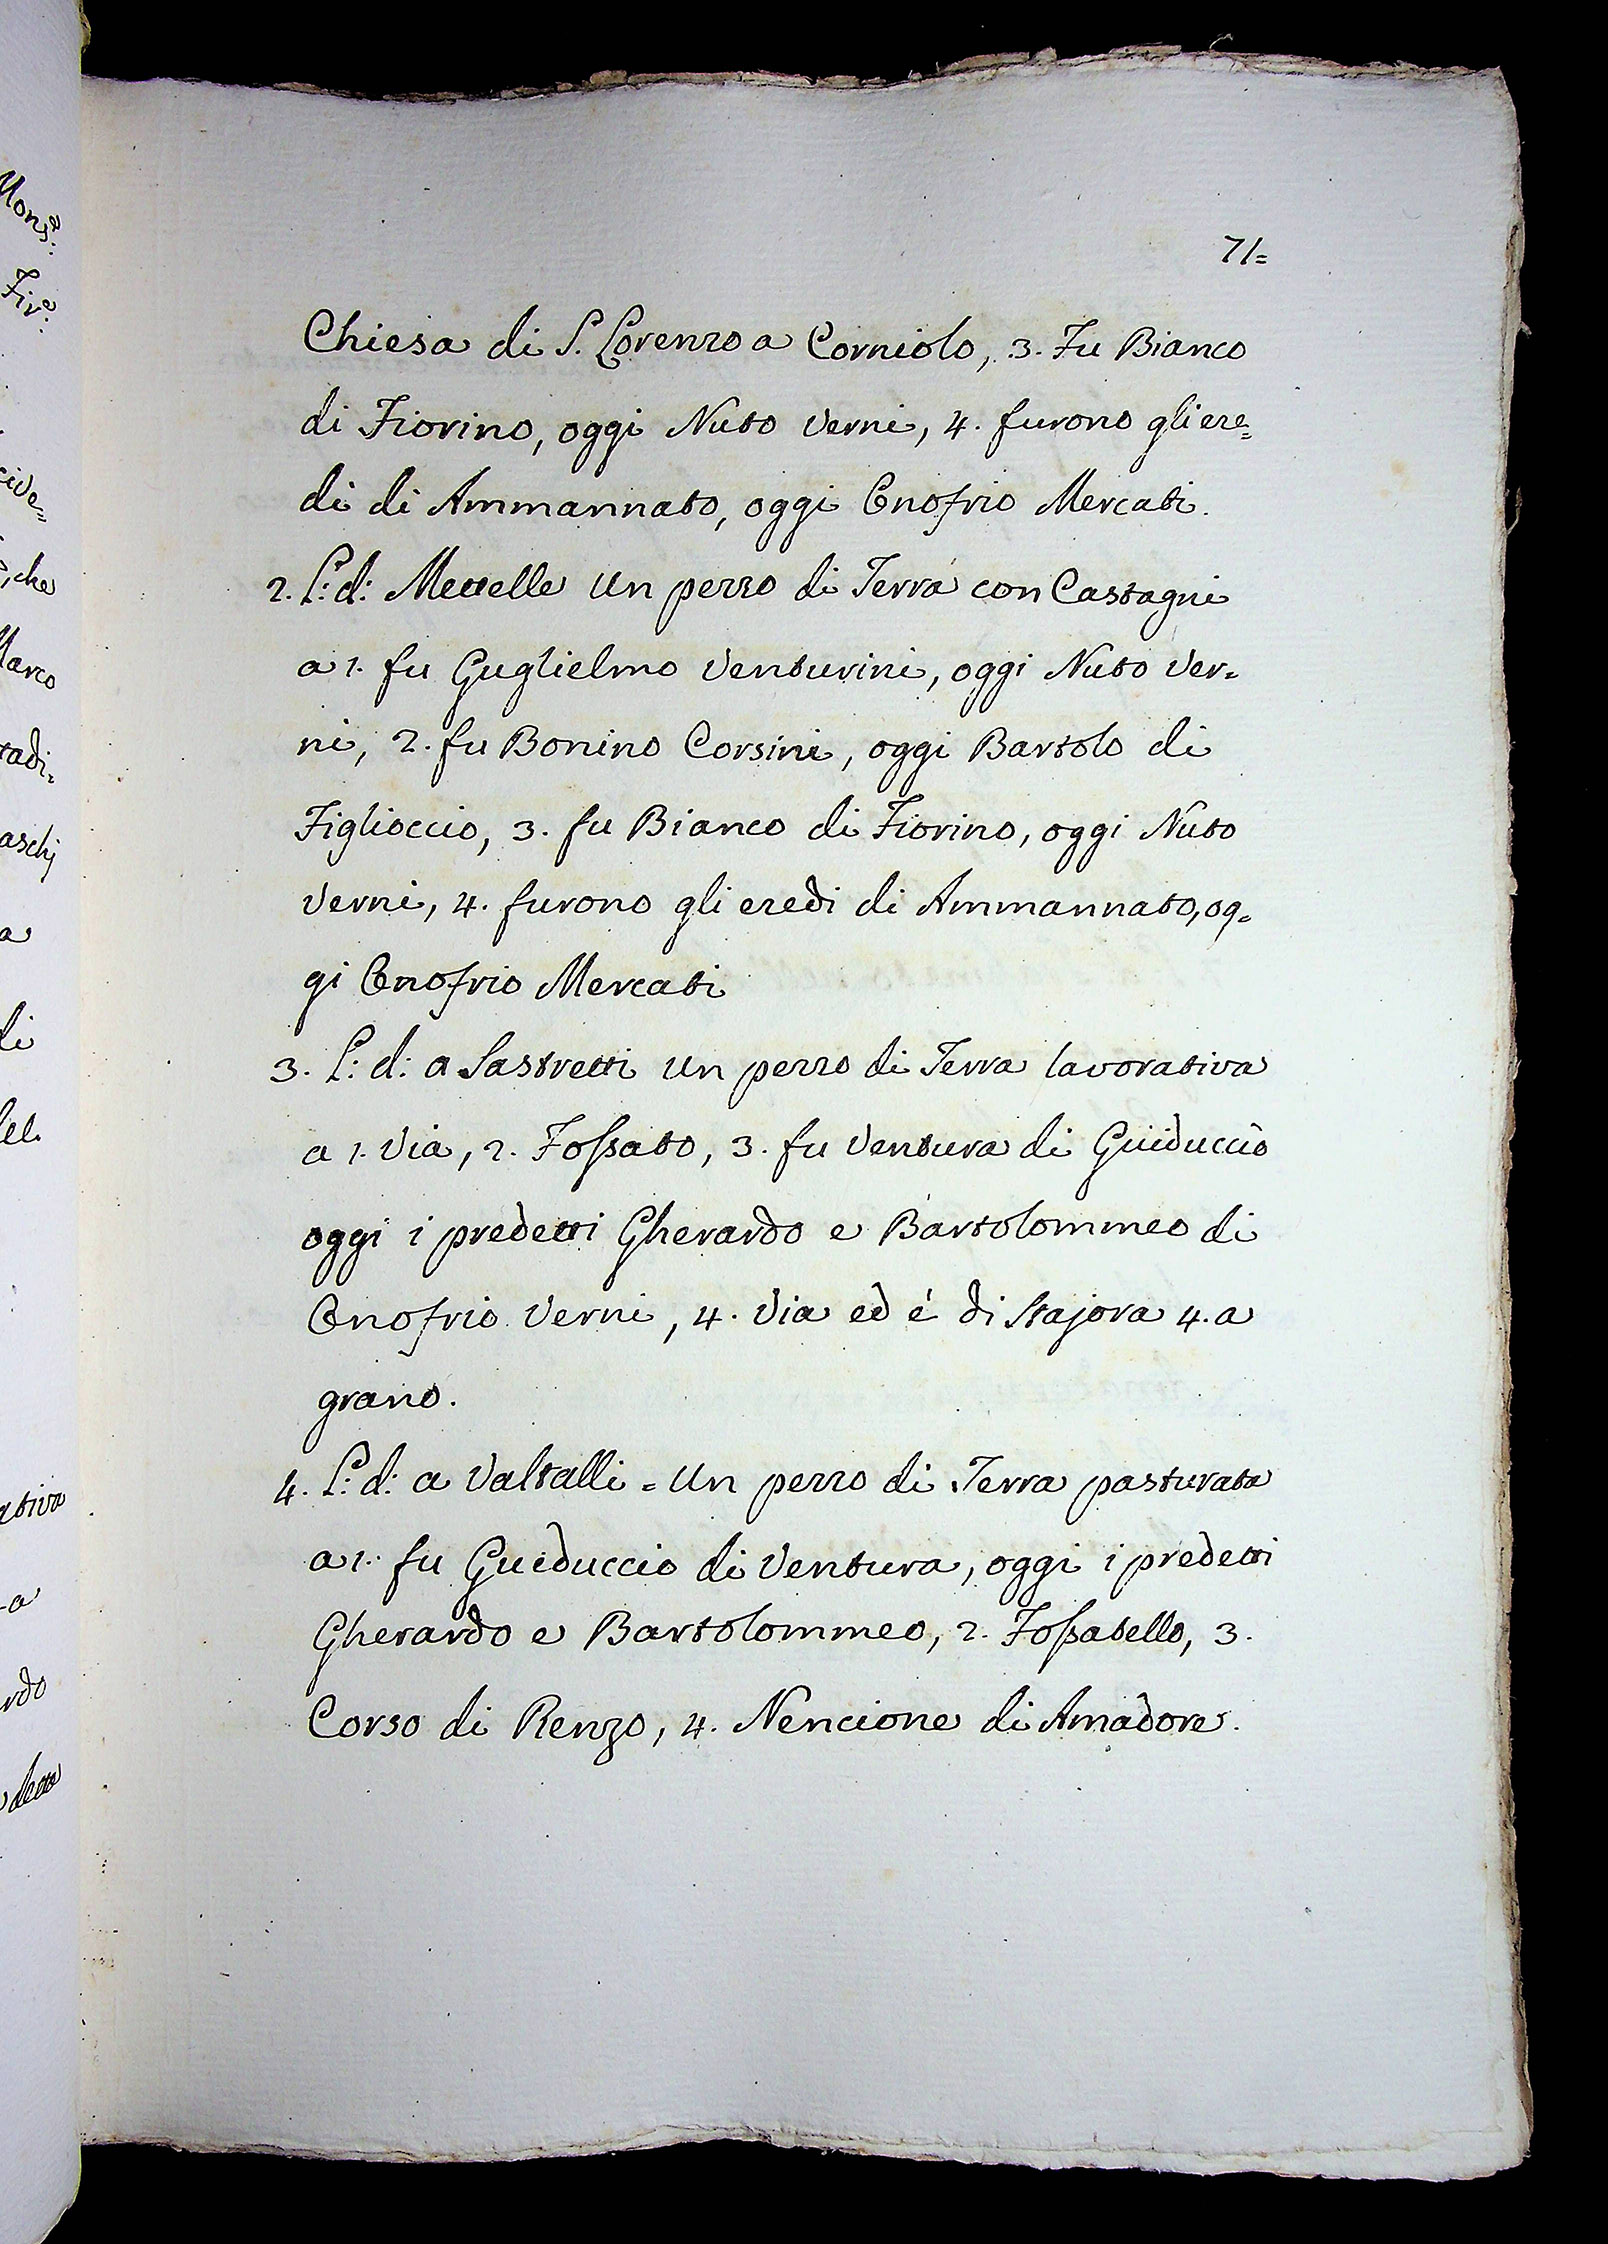 71=
Chiesa di S. Lorenzo a Corniolo, 3. Fu Bianco
di Fiorino, oggi Nuto Verni, 4. furono gli ere=
di di Ammannato, oggi Onofrio Mercati.
2. L: d: Mettelle un pezzo di Terra con Castagni
a 1. fu Guglielmo Venturini, oggi Nuto Ver=
ni, 2. fu Bonino Corsini, oggi Bartolo di
Figlioccio, 3. fu Bianco di Fiorino, oggi Nuto
Verni, 4. furono gli eredi di Ammannato, og=
gi Onofrio Mercati
3. L: d: a Sastretti un pezzo di Terra lavorativa
a 1. Via, 2. Fossato, 3. fu Ventura di Guiduccio
oggi i predetti Gherardo e Bartolommeo di
Onofrio Verni, 4. Via ed é di Stajora 4. a
grano.
4. L: d: a Valtalli = Un pezzo di Terra pasturata
a 1. fu Guiduccio di Ventura, oggi i predetti
Gherardo e Bartolommeo, 2. Fossatello, 3.
Corso di Renzo, 4. Nencione di Amadore.